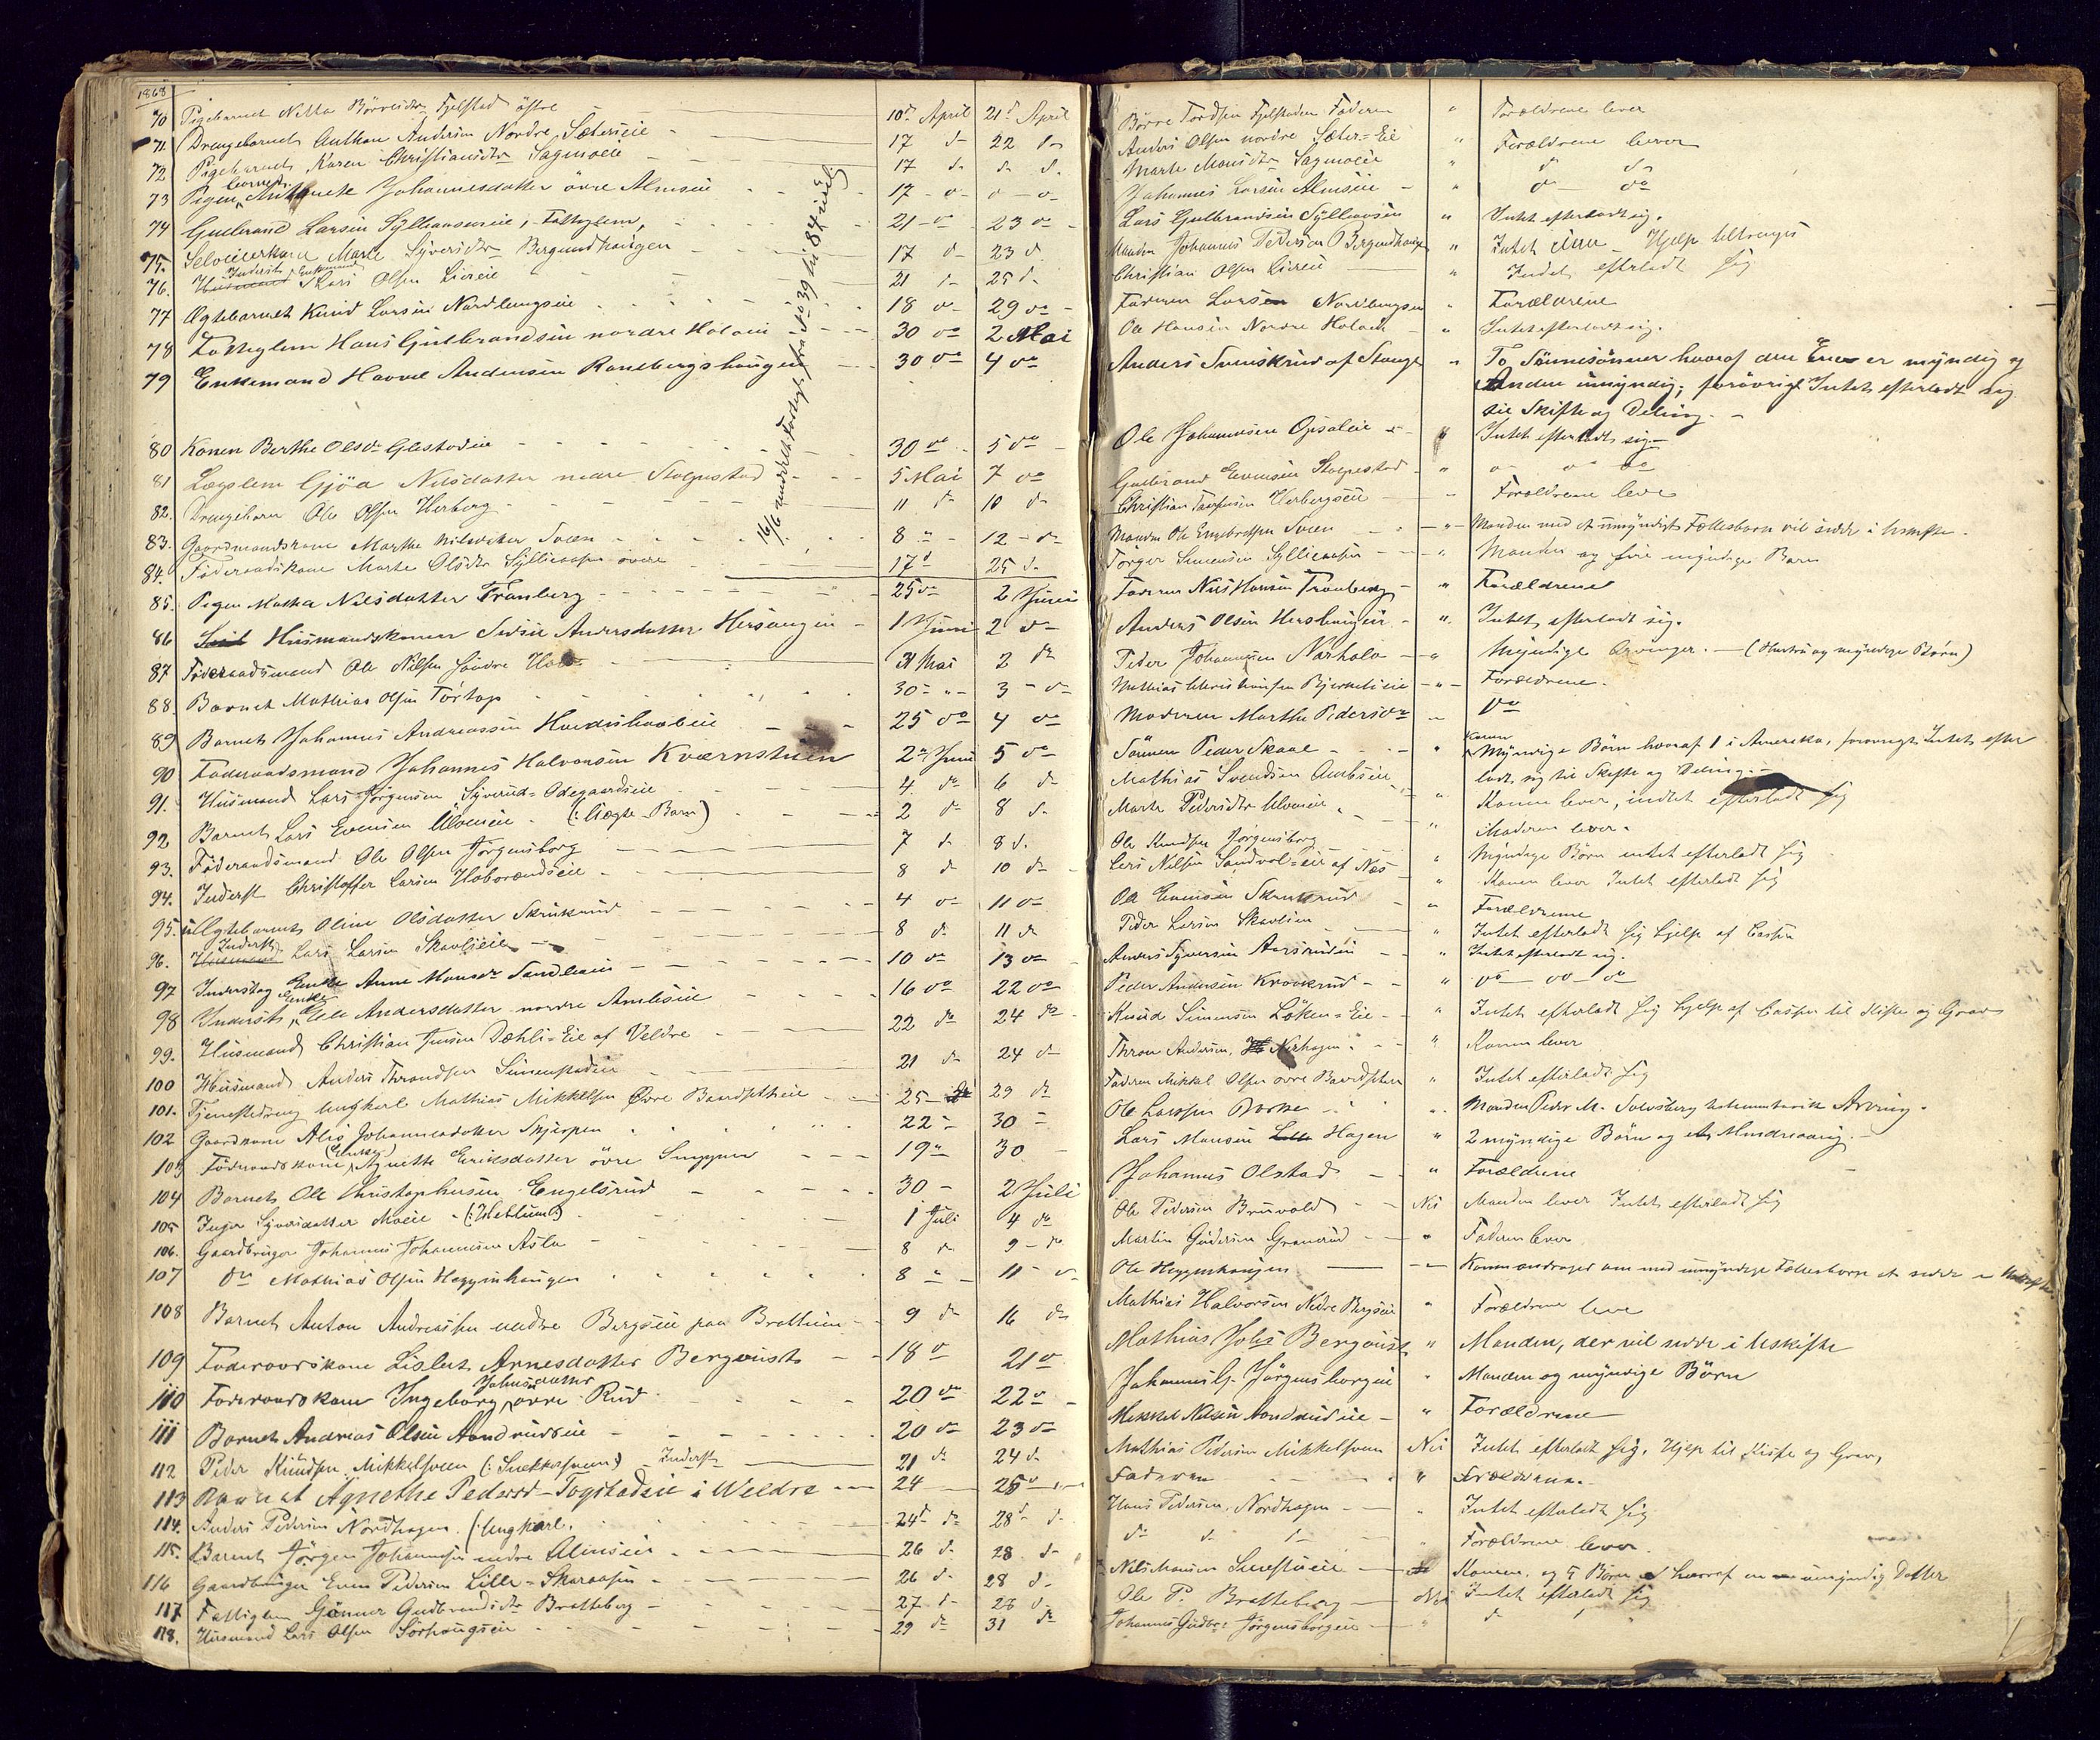 1868
70 Pigebarnet Netta Börresdtr Fjelstad östre 10de April 21d April Börre Tordsen Fjelstaden Faderen " Forældrene lever
71. Drengebarnet Anthon Andersen Nordre Sæterseie 17 d- 22 d- Anders Olsen nordre Sæter=Eie " Forældrene lever
72 Pigebarnet Karen Christiansdtr Sagmoeie 17 d- d- d- Marte Monsdtr Sagmoeie " d- d-
73 Pigen barnet Antonete Johannesdatter övre Almseie 17 - d- d- d- Johannes Larsen Almseie " do do
74 Gulbrand Larsen Sylliaaseneie, Fattiglem, 21 do 23 do Lars Gulbrandsen Sylliaasen " Intet efterladt sig.
75. Selveierkone Marte Syversdtr Bergundhaugen 17 d- 23 d. Manden Johannes Pedersen Bergundhaugen " Intet eier - Hjelp tiltrenges
76. Husmand Inderst Enkemand Lars Olsen Liereie 21 d- 25 d. Christian Olsen Liereie " Intet efterladt sig
77 Ægtebarnet Knud Larsen Nordlungseie 18 do 29 do Faderen Larsen Nordlungseie " Forældrene
78 Fattiglem Hans Gulbrandsen nordre Holoeie 30 do 2 Mai Ole Hansen Nordre Holoeie " Intet efterladt sig.
79 Enkemand Haavel Andersen Ranebergshaugen 30 do 4 do Anders Svenskrud af Stange " To Sönnesönner hvoraf den Ene er myndig og
Anden umyndig; forövrigt Intet efterladt sig
til Skifte og Deling.
16/6 anmeldt Fortegn. fra No 39 til 84 incl.
80 Konen Berthe Olsdr Glestadeie 30 do 5 do Ole Johannesen Opsaleie " Intet efterladt sig
81 Lægslem Gjöa Nilsdatter nedre Stolpestad 5 Mai 7 do Gulbrand Evensen Stolpestad " do do do
82. Drengebarn Ole Olsen Herberg 11 d- 10 d- Christian Herbergseie " Forældrene leve
83. Gaardmandskone Marthe Nilsdatter Sveen 8 " 12 - d- Manden Ole Engebretsen Sveen " Manden med et umyndigt Fællesbarn vil sidde i Uskifte.
84. Föderaadskone Marte Olsdtr Sylliaasen övre 17d 25 d. Torger Simensen Sylliaasen " Manden og fire myndige Barn
85. Pigen Mathea Nilsdatter Tronberg 25 do 2 Juni Faderen Nils Hansen Tronberg " Forældrene
86 Husmandskonen Sidsee Andersdatter Hersaugeie 1 Juni 2 do Anders Olsen Hershaugeie " Intet efterladt sig.
87 Föderaadsmand Ole Nilsen Söndre 31 Mai 2 do Peder Johannesen Narholo " Myndige Arvinger. - (Hustru og myndige Börn)
88. Barnet Mathias Olsen Törtop 30 - " - 3 - do Mathias Christiansen Bjerkelieie " Forældrene.
89 Barnet Johannes Andreassen 25 do 4 do Moderen Marthe Pedersdr " Do
90 Foderaadsmand Johannes Halvorsen Kværnstuen 2 Juni 5 do Sönnen Peder Skaal " Konen Myndige Börn hvoraf 1 i Amerika, forövrigt Intet efter
ladt sig til Skifte og Deling.
91. Husmand Lars Jörgensen Syverud=Ödegaardseie 4 do 6 do Mathias Svendsen Ambseie " Konen lever, indtet efterladt sig
92 Barnet Lars Evensen Ulveneie (: Uægte Barn) 2 do 8 d. Marte Pedersdtr Ulveneie " Moderen lever.
93. Föderaadsmand Ole Olsen Jörgensborg 7 d- 8 d. Ole Knudsen Jörgensborg " Myndige Börn intet efterladt sig
94. Inderst Christoffer Larsen 8 d- 10 d- Lars Nilsen Sandvol=Eie af Næs " Konen lever Intet efterladt sig
95. uÆgtebarnet Oline Olsdatter Skrukrud 4 do 11 do Ole Evensen Skrukrud " Forældrene
96. Husmand Inderst Lars Larsen Skavlieie 8 d. 11 d- Peder Larsen Skavlien " Intet efterladt sig hjelp af Cassen
97 Inderst og Enke Anne Monsdr Sandleneie 10 do 13 do Anders Syversen Aarsrudeie " Intet efterladt sig.
98 Inderst, Enke Elee Andersdatter nordre Ambseie 16 do 22 do Peder Andersen Kraakrud " do do do
99. Husmand Christian Jensen Dæhli=Eie af Veldre 22 do 24 do Knud Simensen Löken=Eie " Intet efterladt sig hjelp af Cassen til Kiste og Grav
100 Husmand Anders Throndsen Simenstadeie 21 d- 24 d- Thron Andersen, Nerhagen " Konen lever
101. Tjenestedreng Ungkarl Mathias Mikkelsen Övre Baardsetheie 25 do 29 do Faderen Mikkel Olsen övre Baardsetheie " Intet efterladt sig
102 Gaardkone Alis Johannesdatter Skjerpen 22 - 30 - Ole Larssen Borke " Manden Peder M. Solvsberg testamentarisk Arving.
103 Föderaadskone (Enke) Agnethe Eriksdatter övre Smeppen 19 " 30 Lars Monsen Hagen " 2 myndige Börn og et Mindreaarig.
104 Barnet Ole Christophersen Engelsrud 30 - 2 Juli Johannes Olstad " Forældrene
105 Inger Syversdatter Moeie (: Hetlund:) 1 Juli 4 do Ole Pedersen Bruvold Nei Manden lever Intet efterladt sig
106. Gaardbruger Johannes Johannesen Asla 8 d- 9 - do Martin Gudersen Granerud " Faderen lever
107 do Mathias Olsen Heggenhaugen 8 " 11 - d- Ole Heggenhaugen " Konen andrager om med umyndige Fællesbarn at sidde i Uskifte
108 Barnet Anton Andreassen nedre Bergseie paa Brattlien 9 do 16 do Mathias Halvorsen Nedre Bergseie " Forældrene leve
109 Foderaadskone Lisbet Arnesdatter Bergqvist 18 do 21 do Mathias Johs Bergquist " Manden, der vil sidde i Uskifte
110 Foderaadskone Ingeborg Johnsdatter övre Rud 20 do 22 do Johannes G. Jörgensborgeie " Manden og myndige Börn
111 Barnet Andreas Olsen Aandrudseie 20 do 23 do Mikkel Nilsen Aandrudeie " Forældrene
112 Peder Knudsen Mikkelsveen (: Snekkersveen) Inderst 21 do 24 d. Mathias Pedersen Mikkelsveen Nei Intet efterladt sig. Hjelp til Kiste og Grav,
113 Barnet Agnethe Pedersd- Togstadeie i Veldre 24 25 Faderen " Forældrene.
114. Anders Pedersen Nordhagen (: Ungkarl. 24d do 28d d- Hans Pedersen Nordhagen " Intet efterladt sig
115. Barnet Jörgen Johannesen nedre Almseie 26 d- 28 d- do d. d- Forældrene lever
116 Gaardbruger Even Pedersen Lille=Skaraasen 26 d- 28 d- Nils Hansen Smestueie Konen og 5 Börn hvoraf en umyndig Datter
117 Fattiglem Gunner Gudbrandsdtr Bratteberg 27 d- 28 d- Ole P. Bratteberg Nei Intet efterladt sig
118. Husmand Lars Olsen Sörhaugseie 29 do 31 do Johannes Gudbr: Jörgensborgeie " d- d-